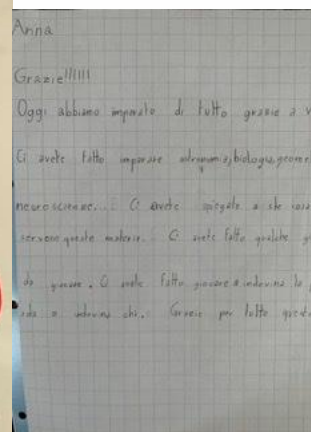 Anna
Grazie!!!!!!
Oggi abbiamo imparato di tutto grazie a v
Ci avete fatto imparare astronomia, biologia, geome
neuroscienze... Ci avete spiegato a che cosa
servono queste materie. Ci avete fatto qualche
da giocare. Ci avete fatto giocare a indovina la
a indovina chi. Grazie per tutto questo